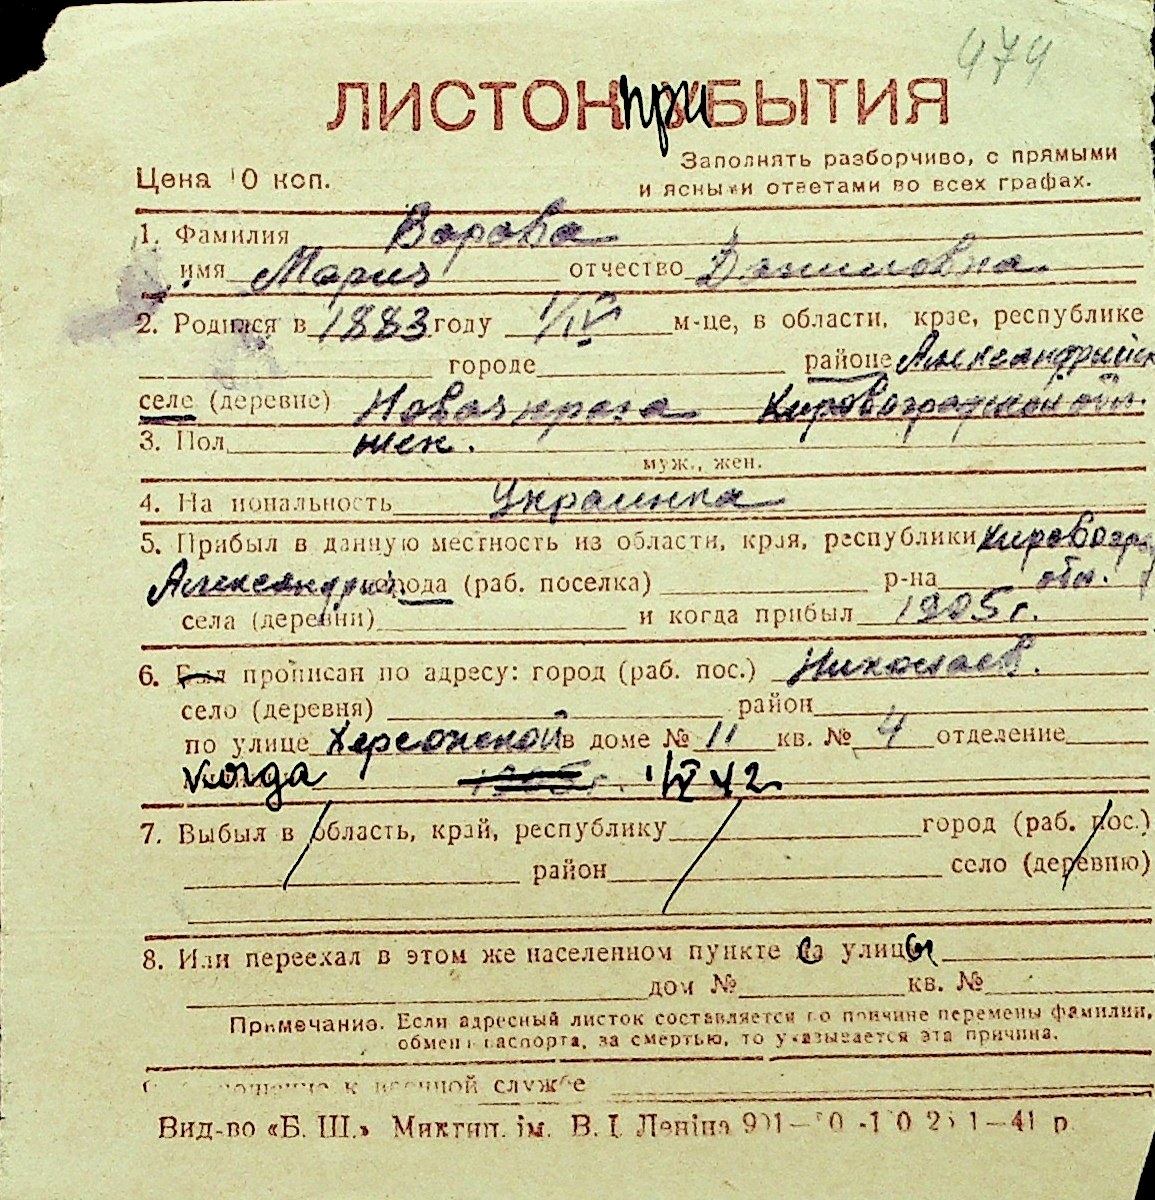 474
ЛИСТОК ПРИБЫТИЯ
Цена 10 коп.
Заполнять разборчиво, с прямыми
и ясными ответами во всех графах.
1. Фамилия Ворова
имя Мария отчество Даниловна
2. Родился в 1883 году 1/IV м-це, в области, крае, республике
городе районе Александрийск
селе (деревне) Новая прага Кировоградской обл.
3. Пол жен.
муж., жен.
4. Национальность Украинка
5. Прибыл в данную местность из области, края, республики Кировоград
обл.
Александрия города (раб. поселка) р-на
села (деревни) и когда прибыл 1905 г.
6. Был прописан по адресу: город (раб. пос.) Николаев.
село (деревня) район
по улице Херсонской в доме № 11 кв. № 4 отделение
когда 1905 г. 1/V 42
7. Выбыл в область, край, республику город (раб. пос.)
район село (деревню)
8. Или переехал в этом же населенном пункте с улицы
дом № кв. №
Примечание. Если адресный листок составляется по причине перемены фамилии,
обмена паспорта, за смертью, то указывается эта причина.
к военной службе
Вид-во «Б. Ш.» Миктип. ім. В. І. Леніна